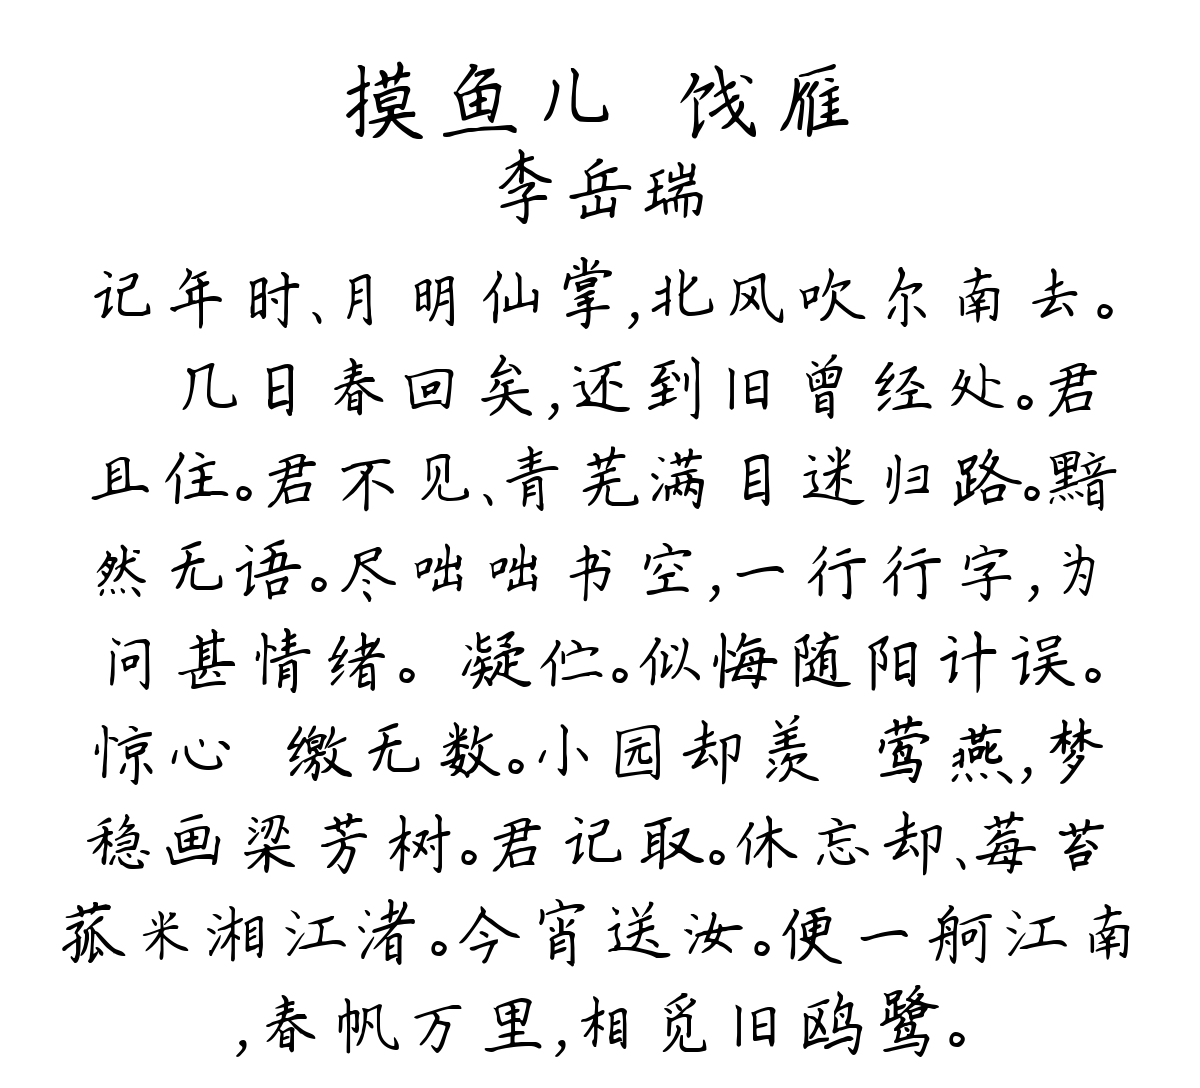 摸鱼儿 饯雁
李岳瑞
记年时、月明仙掌,北风吹尔南去。
几日春回矣,还到旧曾经处。君
且住。君不见、青芜满目迷归路。黯
然无语。尽咄咄书空,一行行字,为
问甚情绪。 凝伫。似悔随阳计误。
惊心 缴无数。小园却羡 莺燕,梦
稳画梁芳树。君记取。休忘却、莓苔
菰米湘江渚。今宵送汝。便一舸江南
,春帆万里,相觅旧鸥鹭。